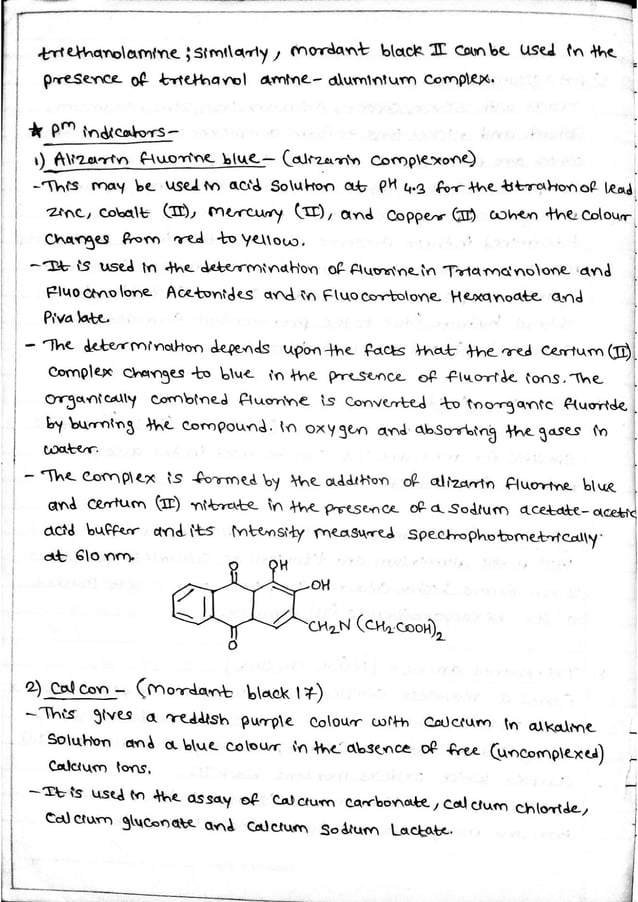 triethanolamine; similarly, mordant black II can be used in the
presence of triethanol amine-aluminium complex.
* PM indicators-
1) Alizarin fluorine blue - (alizarin complexone)
- This may be used in acid solution at pH 4.3 for the titration of lead
zinc, cobalt (II), mercury (II), and copper (II) when the colour
changes from red to yellow.
- It is used in the determination of fluorine in Triamcinolone and
Fluocinolone Acetonides and in Fluocortolone Hexanoate and
Pivalate.
- The determination depends upon the facts that the red cerium (II)
complex changes to blue in the presence of fluoride ions. The
organically combined fluorine is converted to inorganic fluoride
by burning the compound. in oxygen and absorbing the gases in
water.
- The complex is formed by the addition of alizarin fluorine blue
and cerium (II) nitrate in the presence of a sodium acetate-acetic
acid buffer and its intensity measured spectrophotometrically
at 610 nm.
O OH
OH
CH2N (CH2COOH)2
O
2) Calcon - (mordant black 17)
- This gives a reddish purple colour with calcium in alkaline
solution and a blue colour in the absence of free (uncomplexed)
calcium ions.
- It is used in the assay of calcium carbonate, calcium chloride,
calcium gluconate and calcium sodium Lactate.